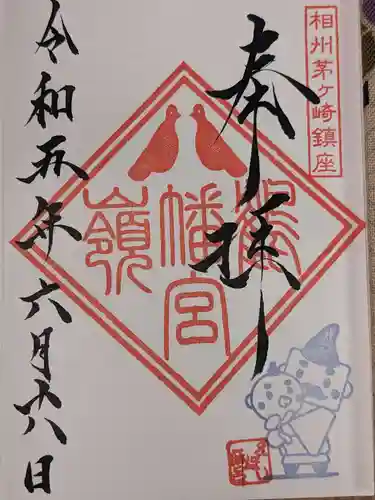 相州茅ヶ崎鎮座
奉拝
鶴嶺八幡宮
令和五年六月十八日